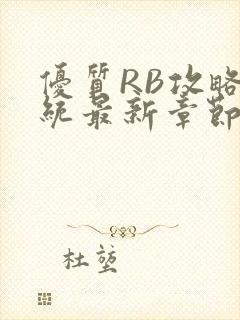 優質RB攻略
統最新章節
杜莛